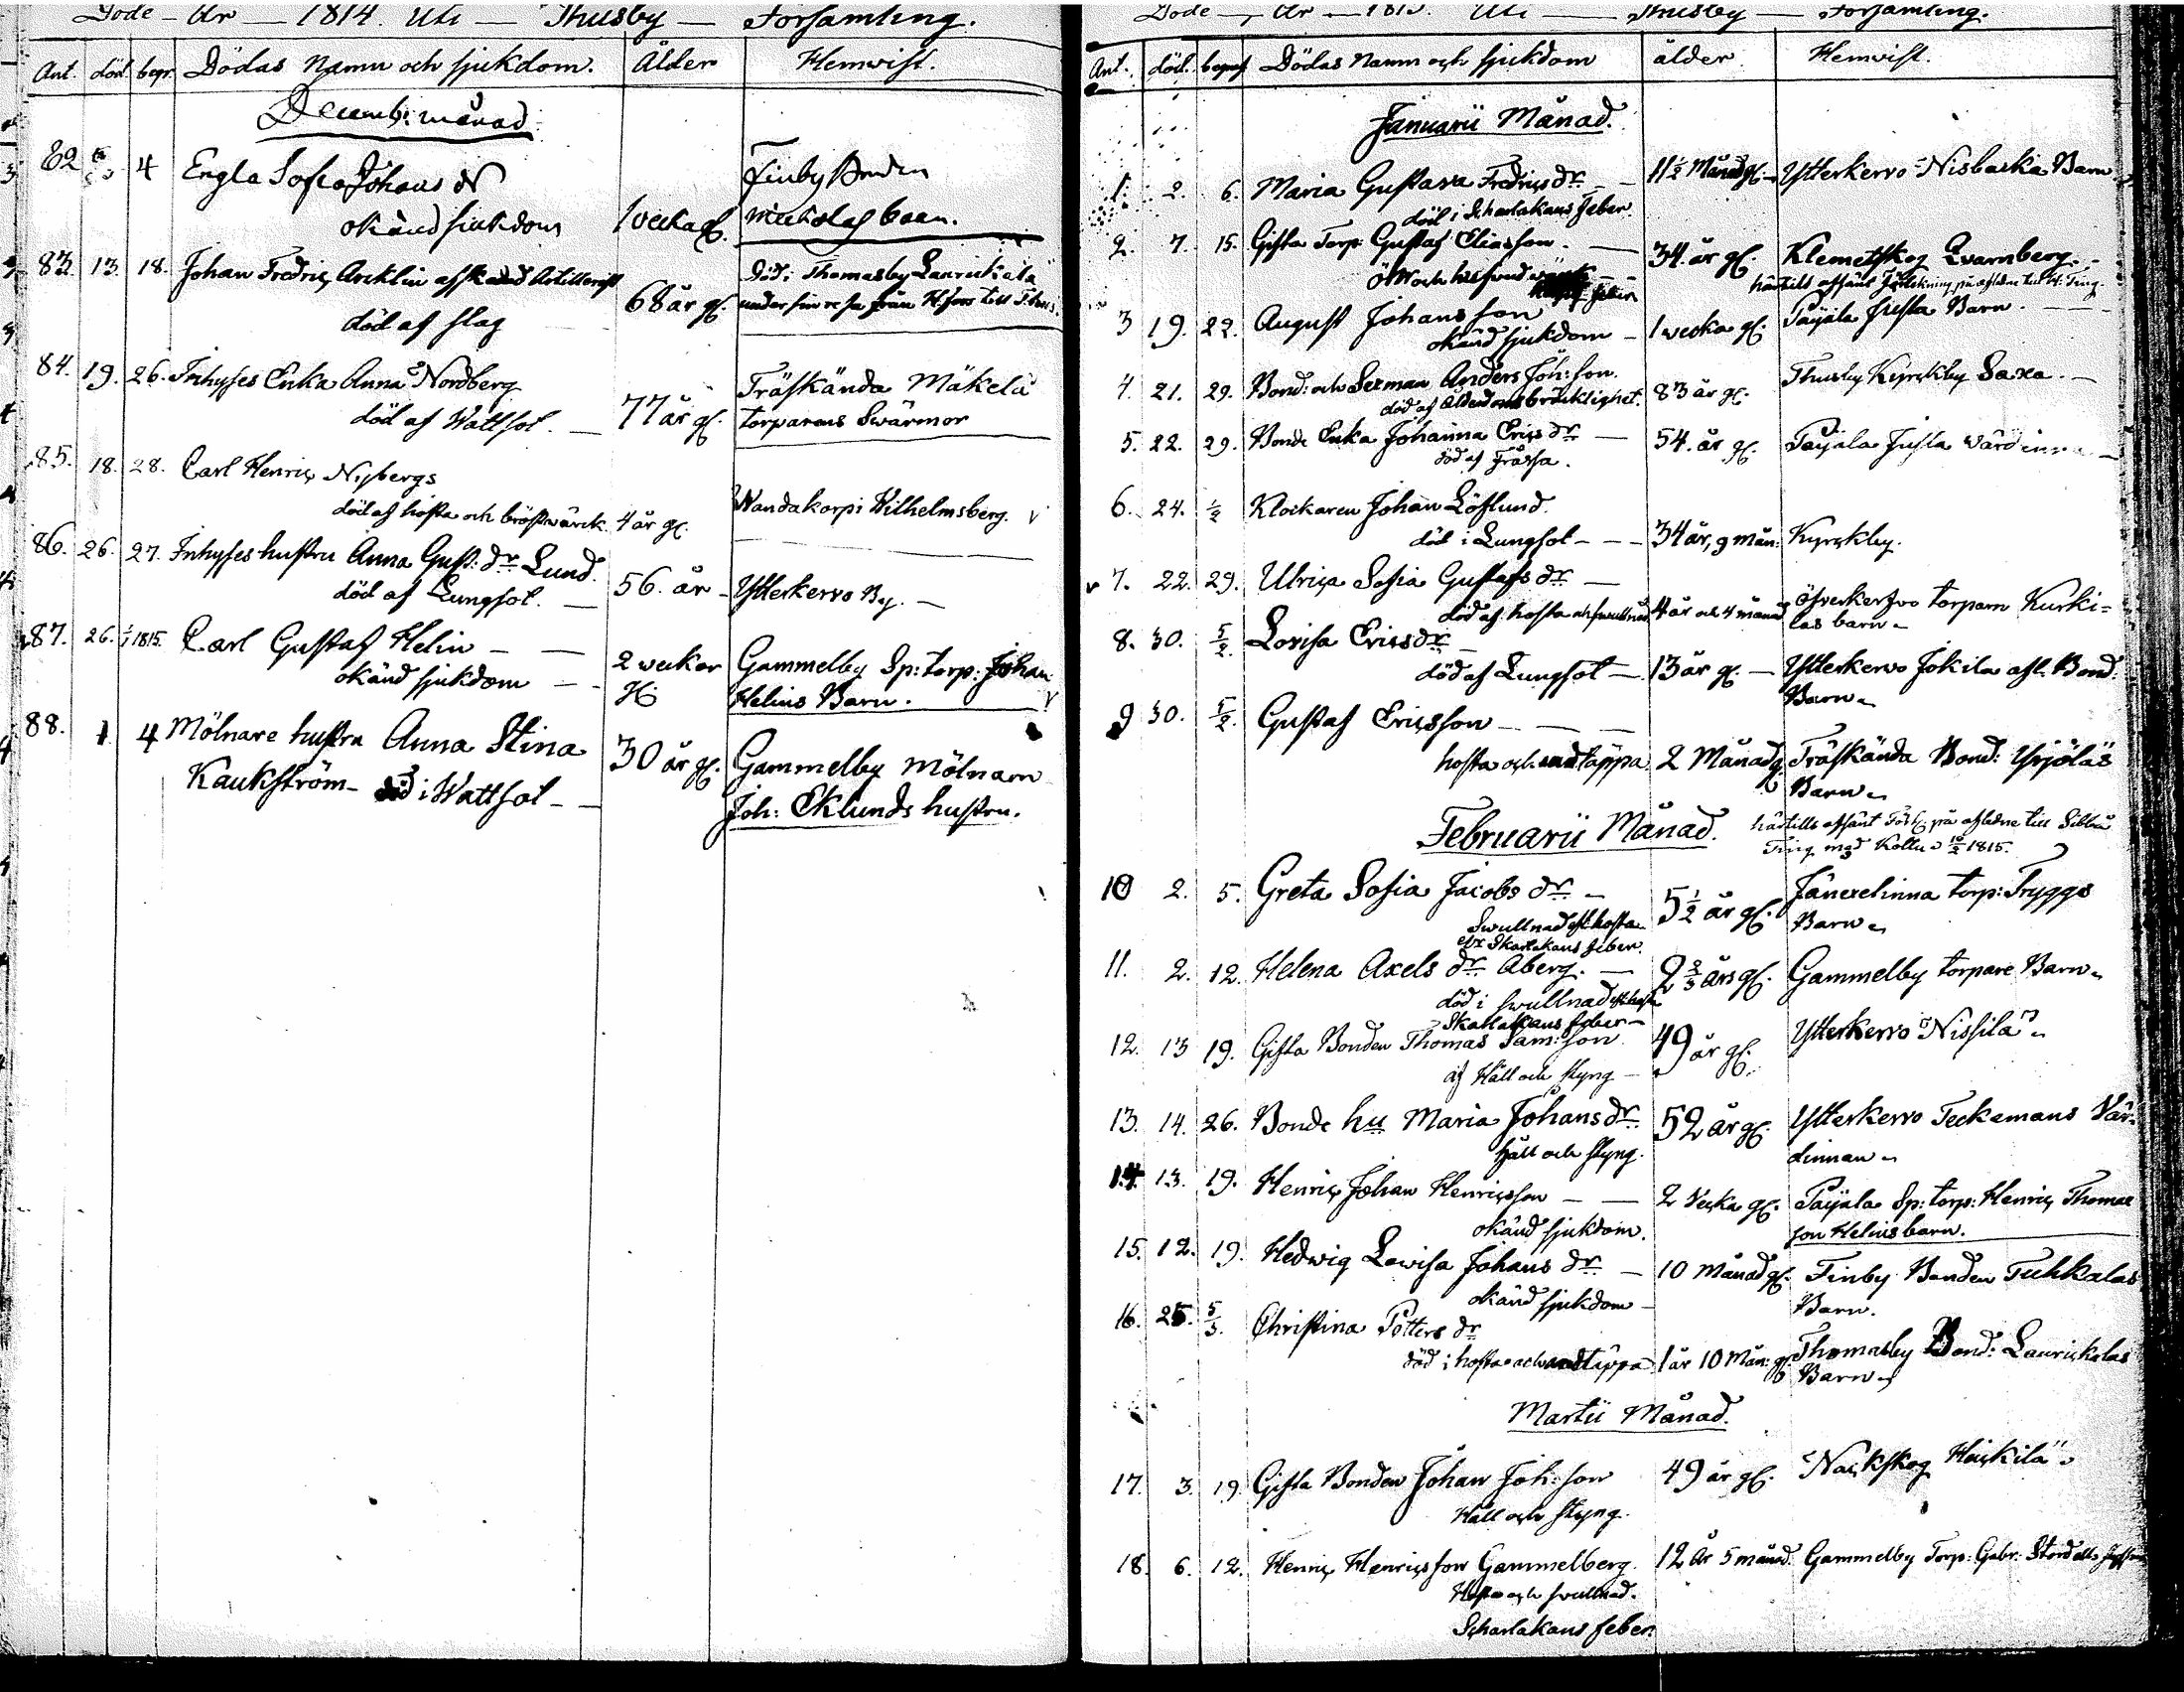 Döde - År - 1814. Uti - Thusby - Församling.
Ant. död. begr. Dödas Namn och sjukdom. Ålder Hemvist.
Decemb: månad
82 4 Engla Sofia Johans Finby
okänd sjukdom 1 vecka gl.
83. 13. 18. Johan Fredric Arcklin afskedad Artillerist 68 år gl. Död i Thomasby Laurickala
död af slag under sin resa från H:fors till
84. 19. 26. Inhyses Enka Anna Nordberg Träskända Mäkelä
död af Wattsot. 77 år gl. torparens Swärmor
85. 18. 28. Carl Henric Nybergs
död af hosta och bröstwärck. 4 år gl. Wandakorpi Wilhelmsberg.
86. 26. 27. Inhyses hustru Anna Gust: dr Lund.
död af Lungsot. 56. år Ytterkervo By.
87. 26. 1/1 1815. Carl Gustaf Helin 2 veckor Gammelby Sp: torp: Johan
okänd sjukdom Helins Barn.
88. 1 4 Mölnare hustru Anna Stina 30 år gl. Gammelby Mölnarn
Kaukström - död i Wattsot Joh: Eklunds hustru.
Döde - År - 1815. Uti - Thusby - Församling.
Ant. död. begraf Dödas Namn och sjukdom ålder. Hemvist.
Januarii Månad.
1. 2. 6. Maria Gustava Fredrics dr 11 1/2 Månad gl. Ytterkervo Nisbacka Barn
död i Scharlakans feber.
2. 7. 15. Gifta Torp: Gustaf Eliasson. 34. år gl. Klemetskog Qvarnberg.
3 19. 22. August Johansson
okänd sjukdom 1 wecka gl. Paijala Jusla Barn.
4. 21. 29. Bond: och Sexman Anders Joh: son. 83 år gl. Thusby Kyrckby Saxa.
död af Ålderdoms bräcklighet.
5. 22. 29. Bonde Enka Johanna Erics dr 54. år gl. Paijala Jusla wärdinna
död af Frässa.
6. 24. 1/2 Klockaren Johan Löflund.
död i Lungsot 34 år, 9 mån: Kyrckby.
7. 22. 29. Ulrica Sofia Gustafs dr
död af hosta och swullnad 4 år och 4 månad öfverkervo torparn Kurki=
las barn
8. 30. 5/2. Lovisa Ericsdr
död af Lungsot 13 år gl. Ytterkervo Jokila afl. Bond:
Barn
9 30. 5/2. Gustaf Ericsson
hosta och andtäppa 2 Månad gl. Träskända Bond: Yrjöläs
Barn
Februarii Månad. härtills afsänt Förtk: på aflidne till Sibbå
Ting med Kollu 10/2 1815.
10 2. 5. Greta Sofia Jacobs dr 5 1/2 år gl. Jänexelinna torp: Tryggs
Swullnad hosta Barn
Skarlakans feber.
11. 2. 12. Helena Axels dr Åberg. 2 2/3 års gl. Gammelby torpare Barn
död i swullnad
Skarlakans feber
12. 13 19. Gifta Bonden Thomas Sam: son 49 år gl. Ytterkervo Nissilä
af Håll och styng
13. 14. 26. Bonde hu Maria Johansdr 52 år gl. Ytterkervo Teckamans Vär-
håll och styng. dinnan
14. 13. 19. Henric Johan Henricsson 2 Vecka gl. Paijala Sp: torp: Henric Thomas
okänd sjukdom. son Helins barn.
15. 12. 19. Hedwig Lovisa Johans dr 10 Månad gl. Finby Bonden Tuhkalas
okänd sjukdom Barn.
16. 25. 5/3. Christina Petters dr
död i hosta och andtäppa 1 år 10 Mån: gl. Thomasby Bond: Laurickalas
Barn
Martii Månad.
17. 3. 19. Gifta Bonden Johan Joh: son 49 år gl. Nackskog Heickilä
Håll och styng.
18. 6. 12. Henric Henricsson Gammelberg. 12 År 5 månad. Gammelby Torp: Gabr:
Hosta och swullnad.
Scharlakans feber.